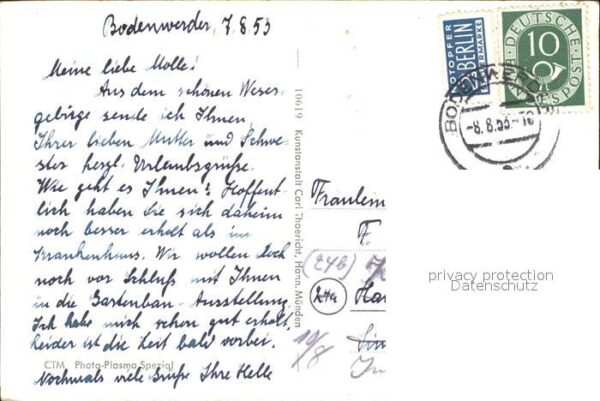 Bodenwerder, 7.8.53
Meine liebe Molle!
Aus dem schönen Weser-
gebirge sende ich Ihnen,
Ihrer lieben Mutter und Schwe-
ster herzl. Urlaubsgrüße.
Wie geht es Ihnen? Hoffent-
lich haben die sich daheim
noch besser erholt als im
Krankenhaus. Wir wollen doch
noch vor Schluß mit Ihnen
in die Gartenbau-Ausstellung.
Ich habe mich schon gut erholt,
leider ist die Zeit bald vorbei.
CTM Photo-Plasma-Spezial
Nochmals viele Grüße Ihre Helle
10619 Kunstanstalt Carl Thoericht, Hann. Münden
NOTOPFER
2 BERLIN
STEUERMARKE
DEUTSCHE
10
POST
BODENWERDER
-8.8.53-16
Fräulein
F.
(24b)
Ha
10/8
privacy protection
Datenschutz